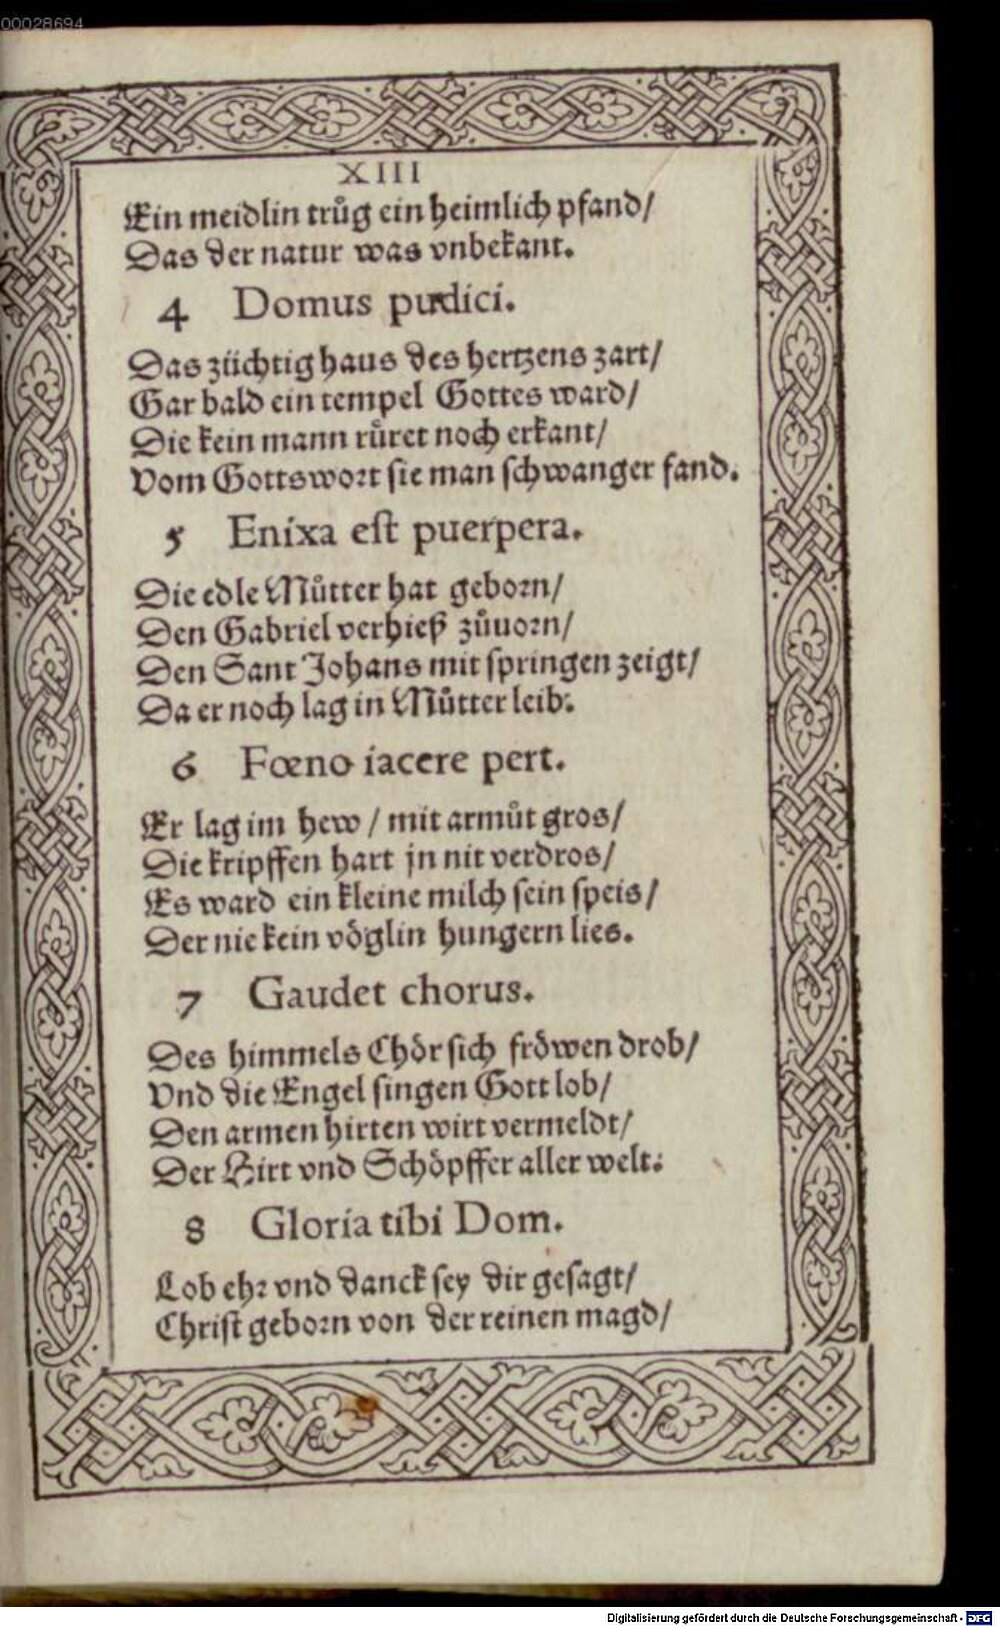 00028694
XIII
Ein meidlin trůg ein heimlich pfand/
Das der natur was vnbekant.
4 Domus pudici.
Das züchtig haus des hertzens zart/
Gar bald ein tempel Gottes ward/
Die kein mann růret noch erkant/
Vom Gottswort sie man schwanger fand.
5 Enixa est puerpera.
Die edle Můtter hat geborn/
Den Gabriel verhieß zůuorn/
Den Sant Johans mit springen zeigt/
Da er noch lag in Můtter leib.
6 Fœno iacere pert.
Er lag im hew / mit armůt gros/
Die kripffen hart jn nit verdros/
Es ward ein kleine milch sein speis/
Der nie kein vöglin hungern lies.
7 Gaudet chorus.
Des himmels Chör sich fröwen drob/
Vnd die Engel singen Gott lob/
Den armen hirten wirt vermeldt/
Der Hirt vnd Schöpffer aller welt.
8 Gloria tibi Dom.
Lob ehr vnd danck sey dir gesagt/
Christ geborn von der reinen magd/
Digitalisierung gefördert durch die Deutsche Forschungsgemeinschaft - DFG